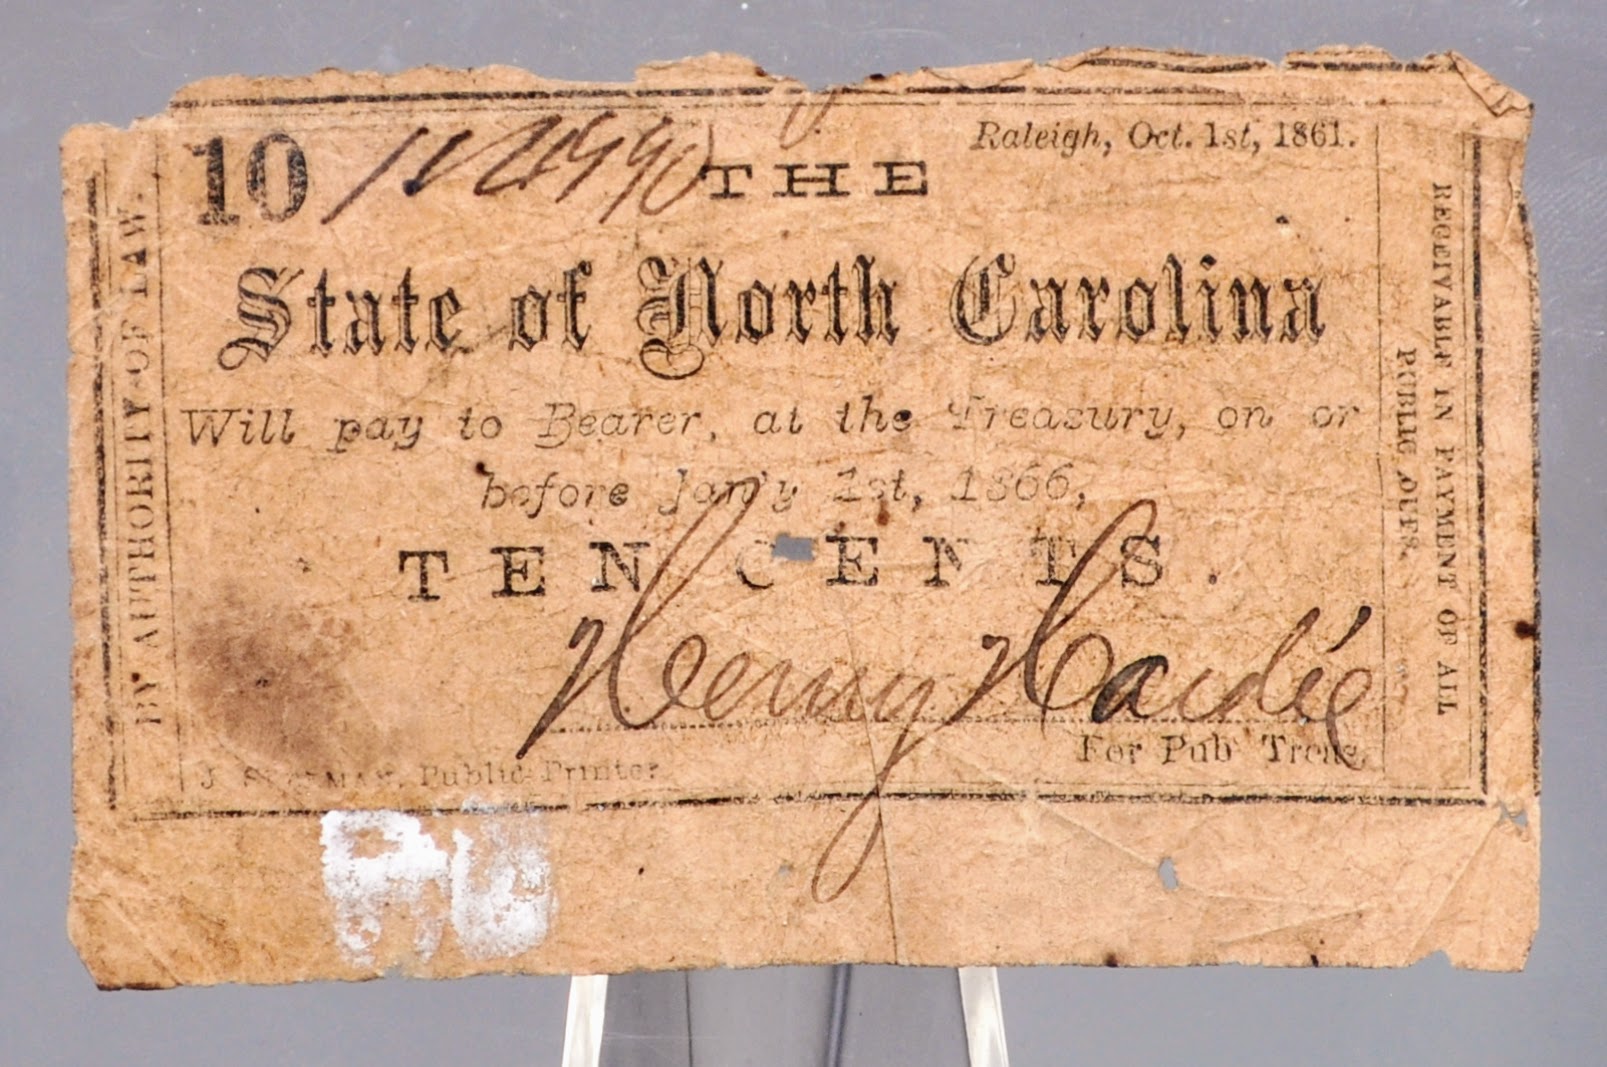 Raleigh, Oct. 1st, 1861.
10
THE
State of North Carolina
Will pay to Bearer, at the Treasury, on or
before Jan'y 1st, 1866,
TEN CENTS.
Henry Hardie
For Pub Treas.
Public Printer
BY AUTHORITY OF LAW.
RECEIVABLE IN PAYMENT OF ALL
PUBLIC DUES.